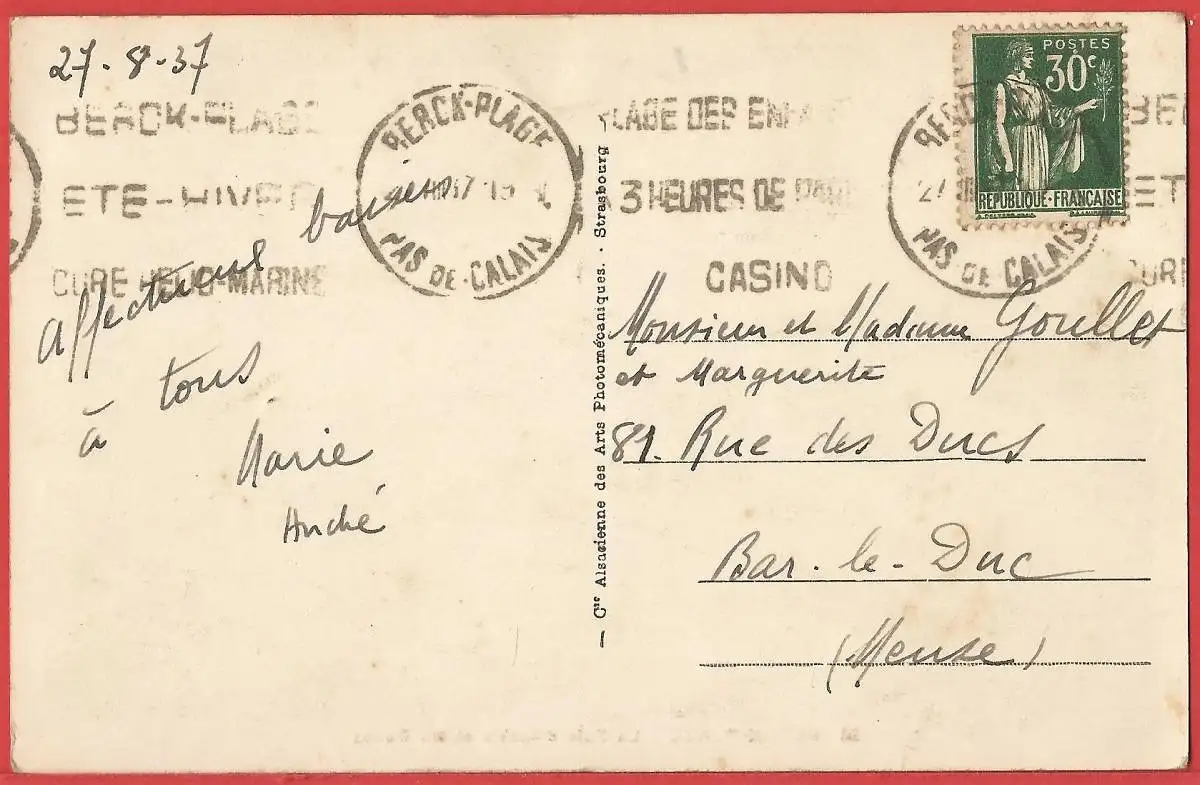 27-8-37
BERCK-PLAGE
ETE-HIVER
CURE HELIO-MARINE
BERCK-PLAGE
PAS DE-CALAIS
PLAGE DES ENFANTS
3 HEURES DE PARIS
CASINO
PAS DE-CALAIS
POSTES
30c
REPUBLIQUE-FRANÇAISE
Affectueux baisers
à tous
Marie
André
— Cie Alsacienne des Arts Photomécaniques. - Strasbourg
Monsieur et Madame Goullet
et Marguerite
81. Rue des Ducs
Bar-le-Duc
(Meuse)